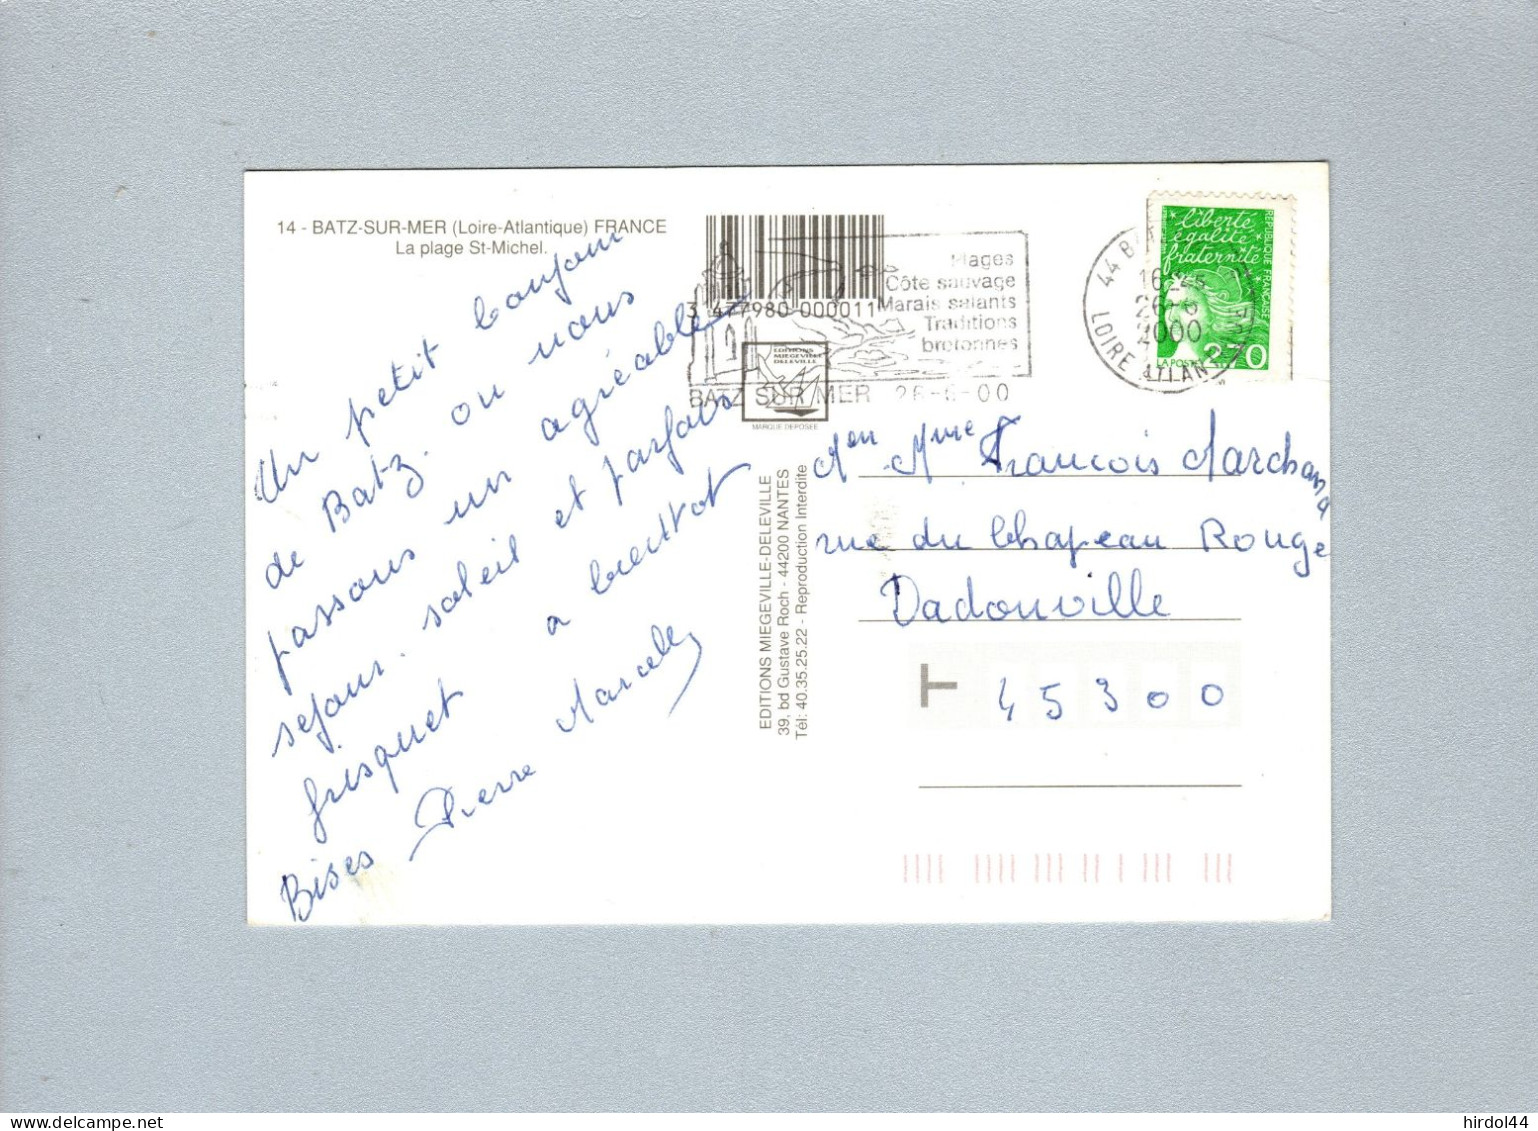 14 - BATZ-SUR-MER (Loire-Atlantique) FRANCE
La plage St-Michel.
Un petit bonjour
de Batz. ou nous
passons un agréable
sejour. soleil et parfois
frisquet a bientot
Bises Pierre Marcelle
3 477980 000011
EDITIONS
MIEGEVILLE
DELEVILLE
MARQUE DEPOSEE
Plages
Côte sauvage
Marais salants
Traditions
bretonnes
BATZ SUR MER 26-6-00
44 BATZ
16H45
26-6
2000
LOIRE ATLANTIQUE
liberté
égalité
fraternité
RÉPUBLIQUE FRANÇAISE
LA POSTE 2,70
EDITIONS MIEGEVILLE-DELEVILLE
39, bd Gustave Roch - 44200 NANTES
Tél: 40.35.25.22 - Reproduction Interdite
Mme François Marchand
rue du Chapeau Rouge
Dadonville
T 45300
hirdol44